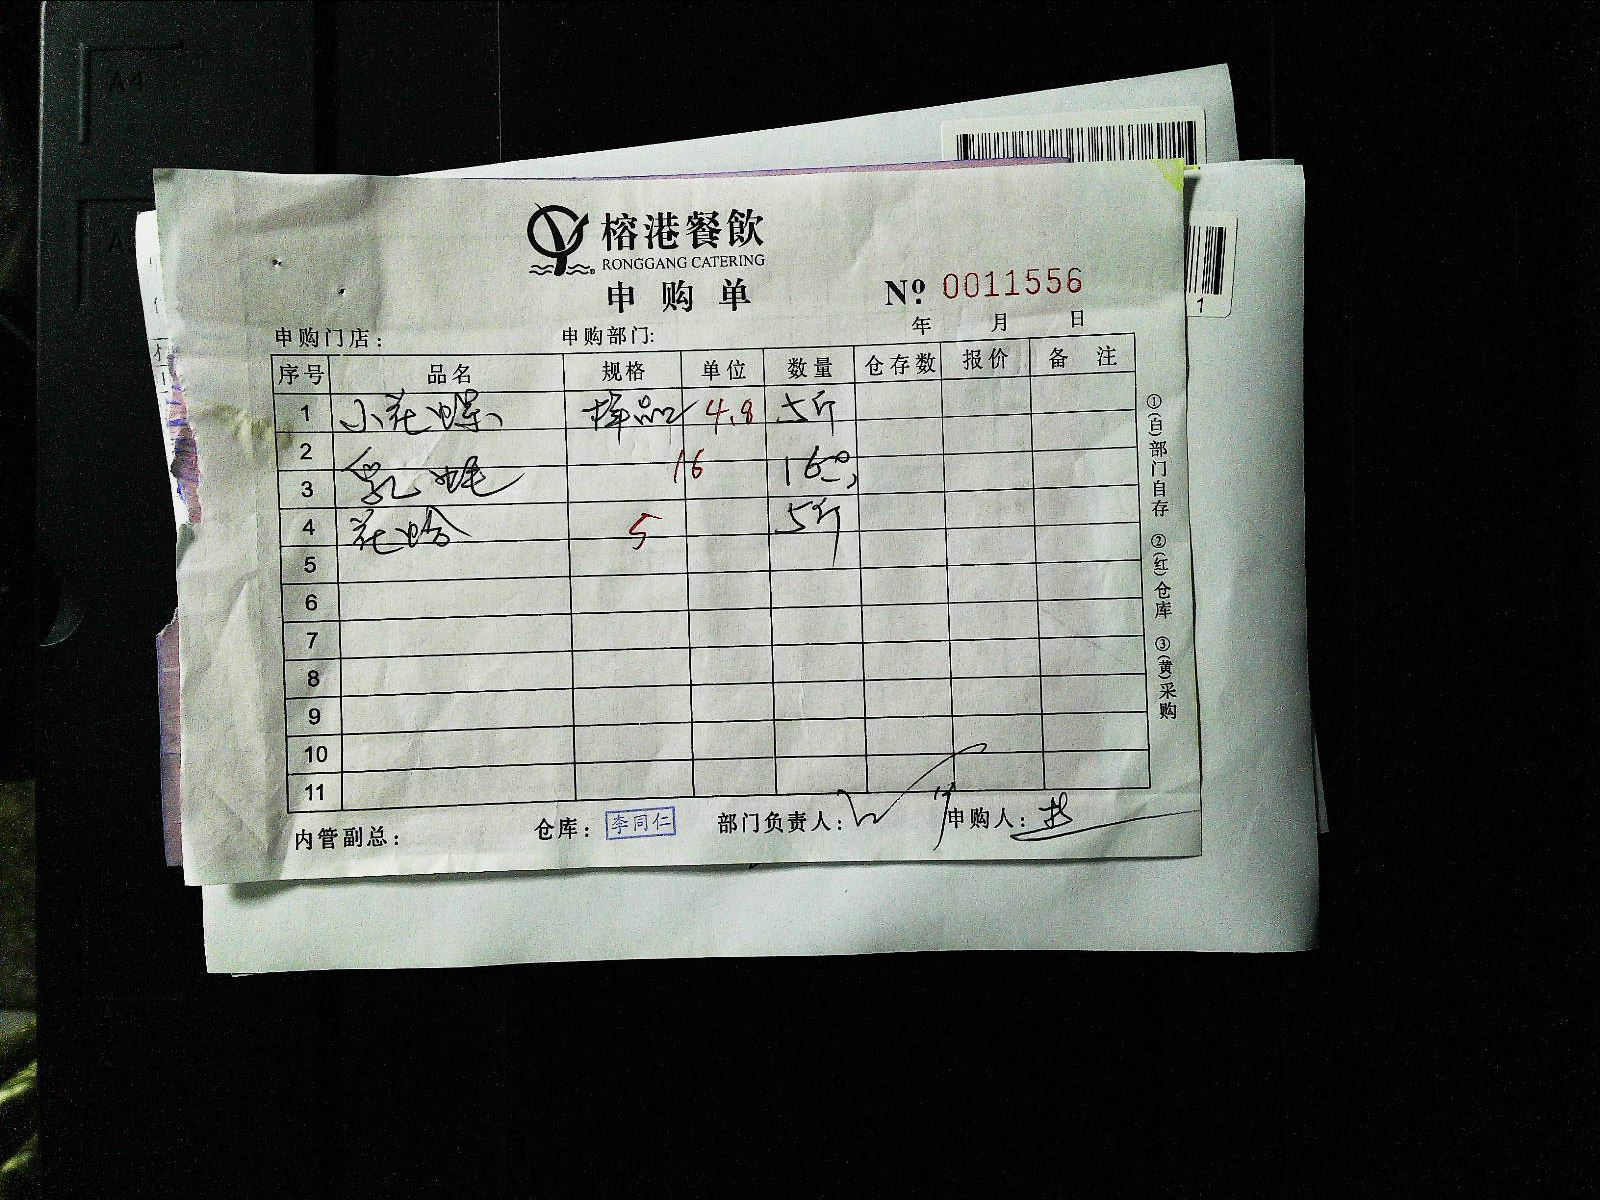 榕港餐飲
RONGGANG CATERING
申购单
№ 0011556
申购门店： 申购部门: 年 月 日
序号 品名 规格 单位 数量 仓存数 报价 备注
1 小花螺 样品 4.8 5斤
2
3 乳 16 16
4 花蛤 5 5斤
5
6
7
8
9
10
11
内管副总： 仓库： 李同仁 部门负责人： 申购人：
①(白)部门自存 ②(红)仓库 ③(黄)采购
A4
1